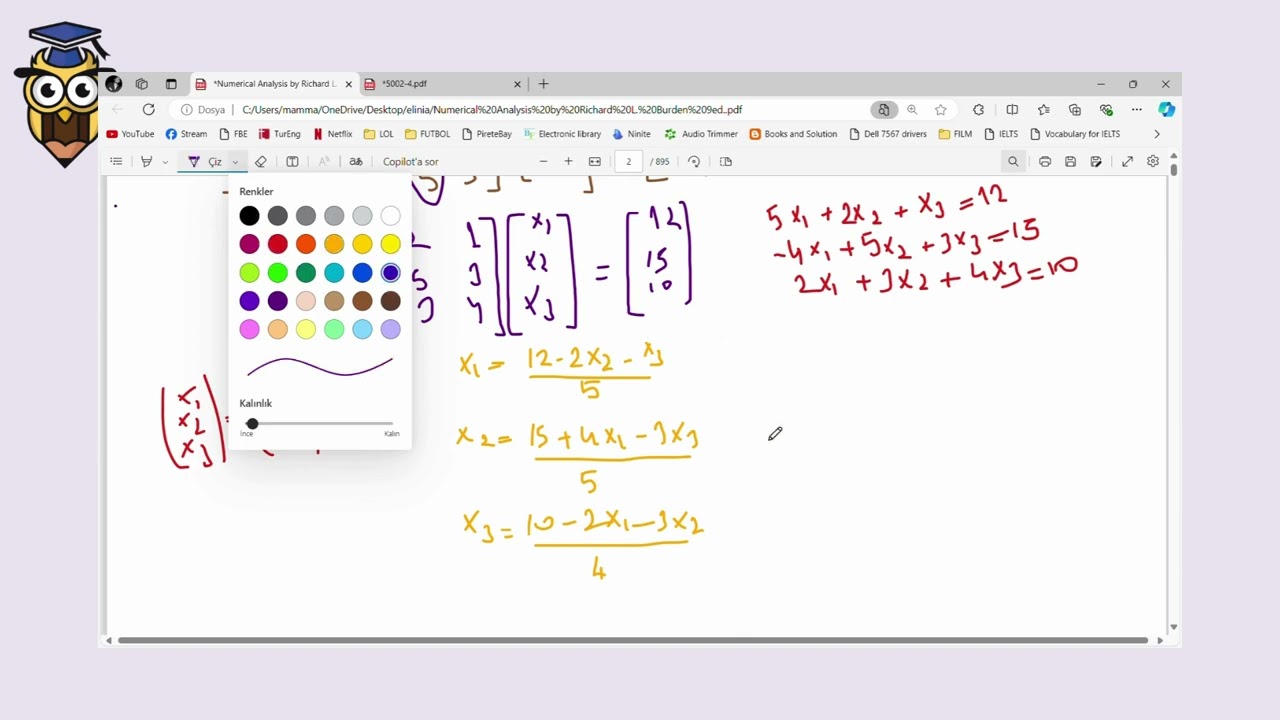 *Numerical Analysis by Richard L
*5002-4.pdf
Dosya
C:/Users/mamma/OneDrive/Desktop/elinia/Numerical%20Analysis%20by%20Richard%20L.%20Burden%209ed..pdf
YouTube Stream FBE TurEng Netflix LOL FUTBOL PirateBay Electronic library Ninite Audio Trimmer Books and Solution Dell 7567 drivers FILM IELTS Vocabulary for IELTS
Çiz Copilot'a sor 2 / 895
Renkler
Kalınlık
İnce Kalın
1 x1 12
3 x2 = 15
4 x3 10
5x1 + 2x2 + x3 = 12
-4x1 + 5x2 + 3x3 = 15
2x1 + 3x2 + 4x3 = 10
x1
x2
x3
x1 = 12 - 2x2 - x3
5
x2 = 15 + 4x1 - 3x3
5
x3 = 10 - 2x1 - 3x2
4